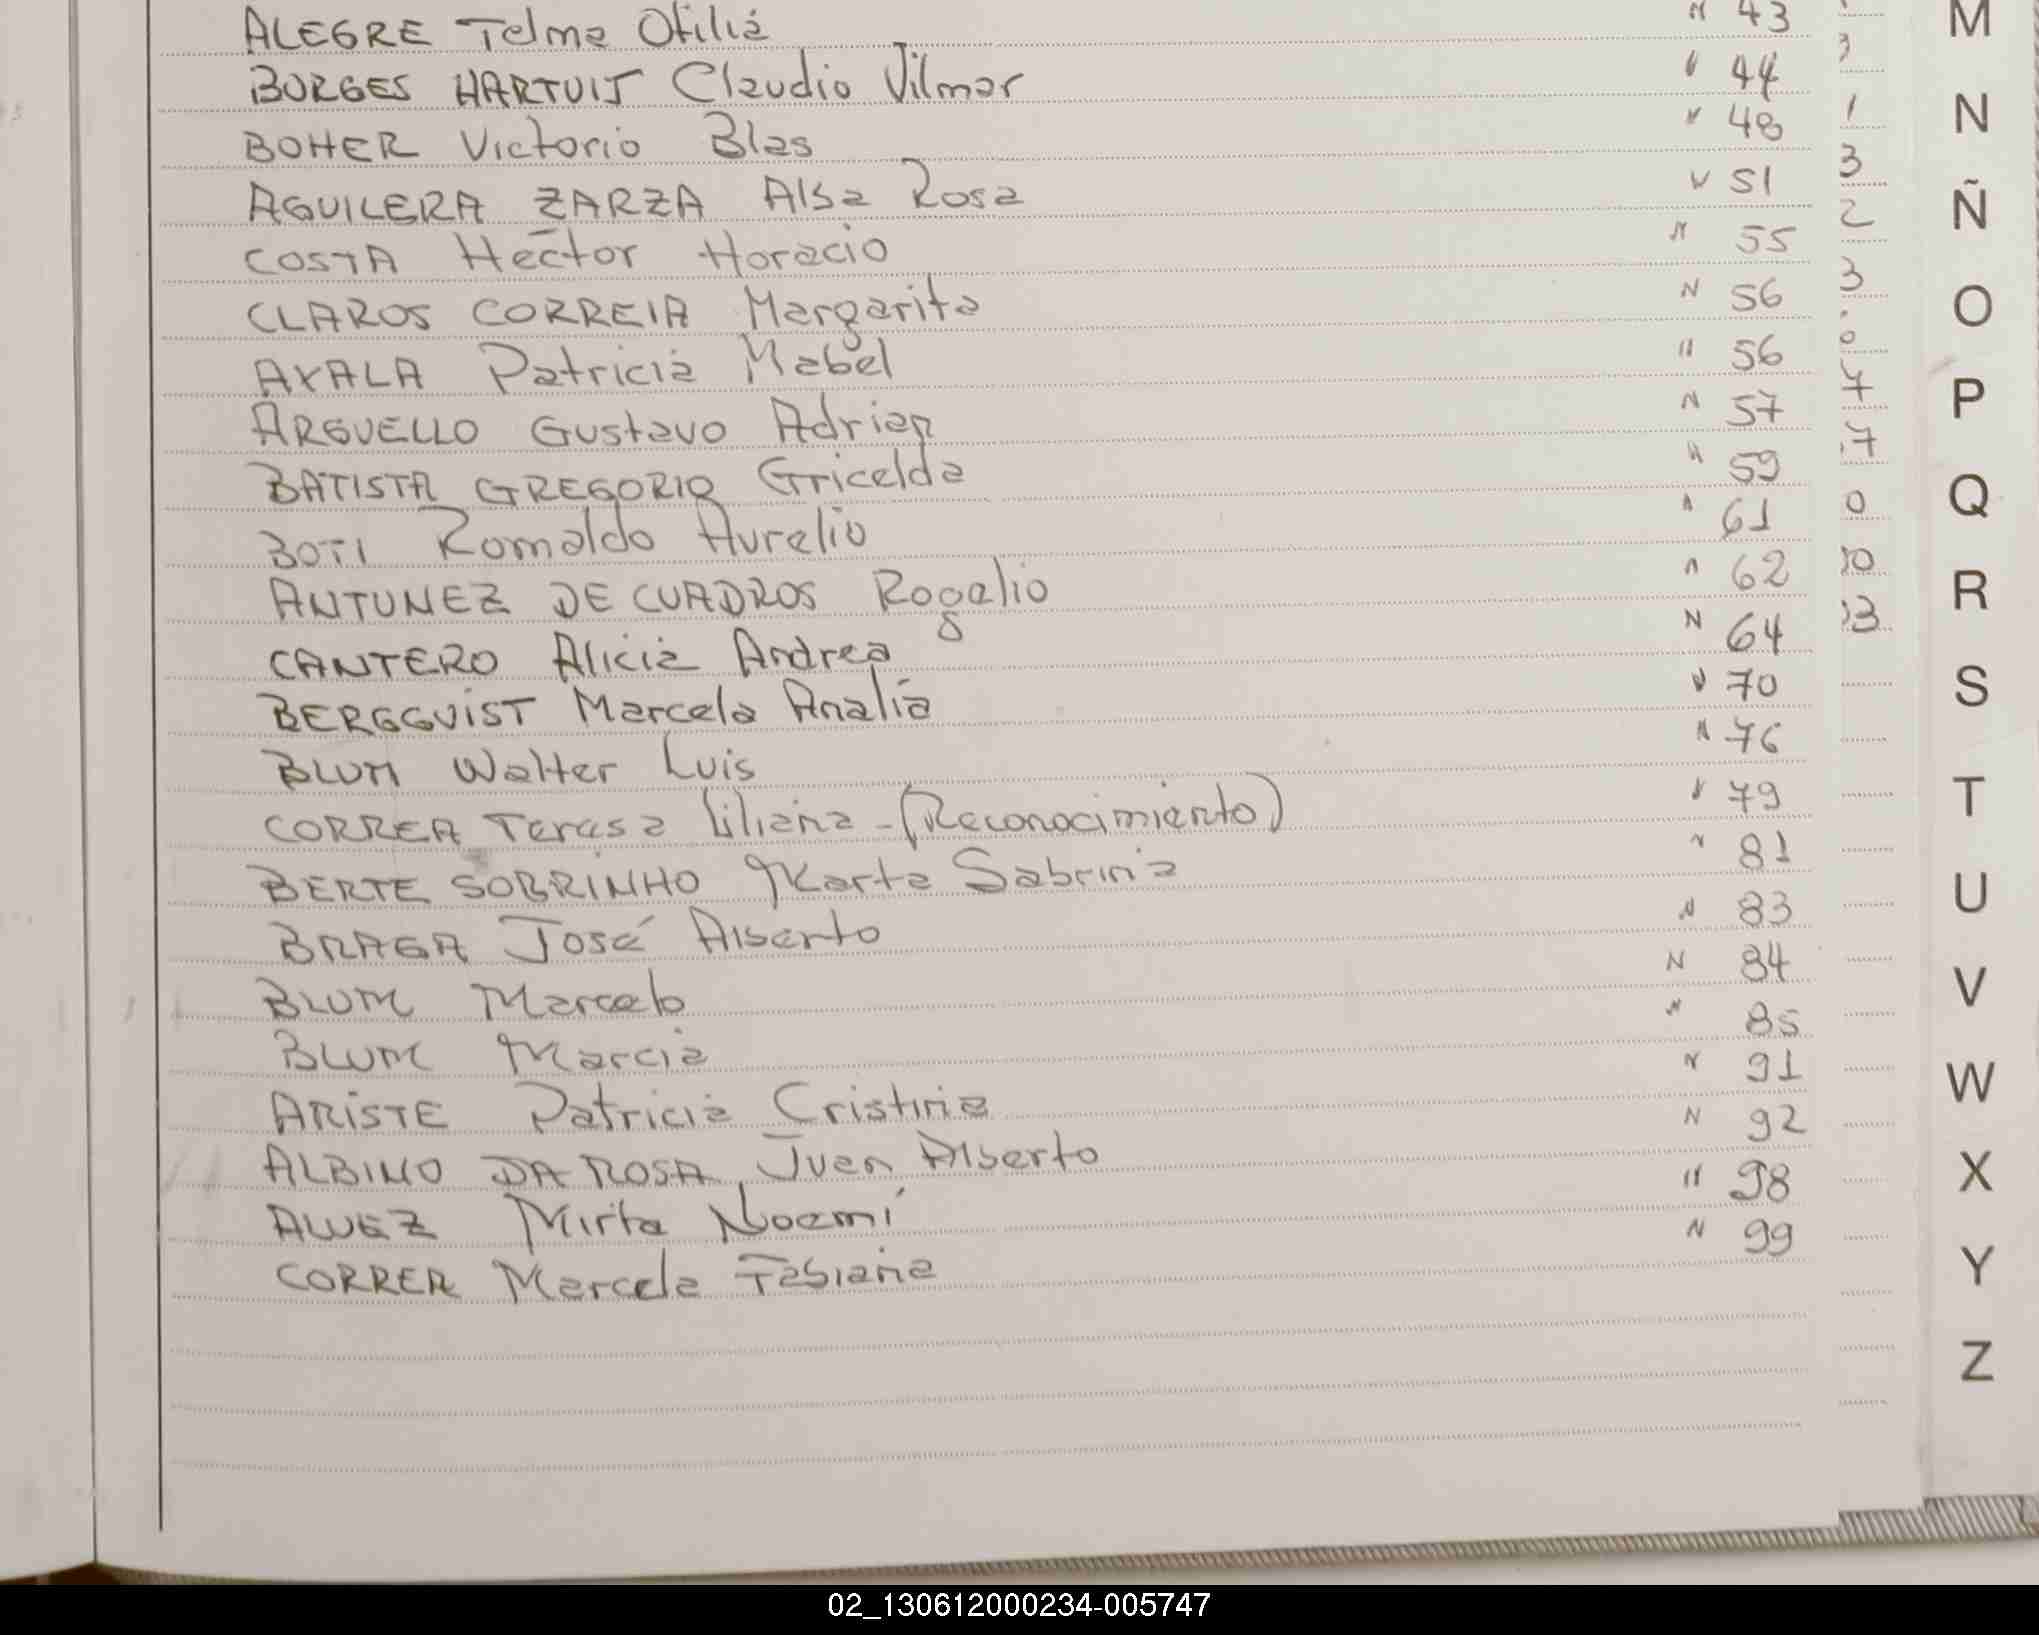 ALEGRE Telma Otilia " 43
BORGES HARTUIJ Claudio Vilmar " 44
BOHER Victorio Blas " 48
AGUILERA ZARZA Alba Rosa " 51
COSTA Hector Horacio " 55
CLAROS CORREIA Margarita " 56
AYALA Patricia Mabel " 56
ARGUELLO Gustavo Adrian " 57
BATISTA GREGORIO Gricelda " 59
BOTI Romaldo Aurelio " 61
ANTUNEZ DE CUADROS Rogelio " 62
CANTERO Alicia Andrea " 64
BERGGUIST Marcela Analía " 70
BLUM Walter Luis " 76
CORREA Teresa Liliana - (Reconocimiento) " 79
BERTE SOBRINHO Marta Sabrina " 81
BRAGA José Alberto " 83
BLUM Marcelo " 84
BLUM Marcia " 85
ARISTE Patricia Cristina " 91
ALBINO DA ROSA Juan Alberto " 92
ALVEZ Mirta Noemí " 98
CORREA Marcela Fabiana " 99
1
3
2
3
7
7
0
30
33
M
N
Ñ
O
P
Q
R
S
T
U
V
W
X
Y
Z
02_130612000234-005747